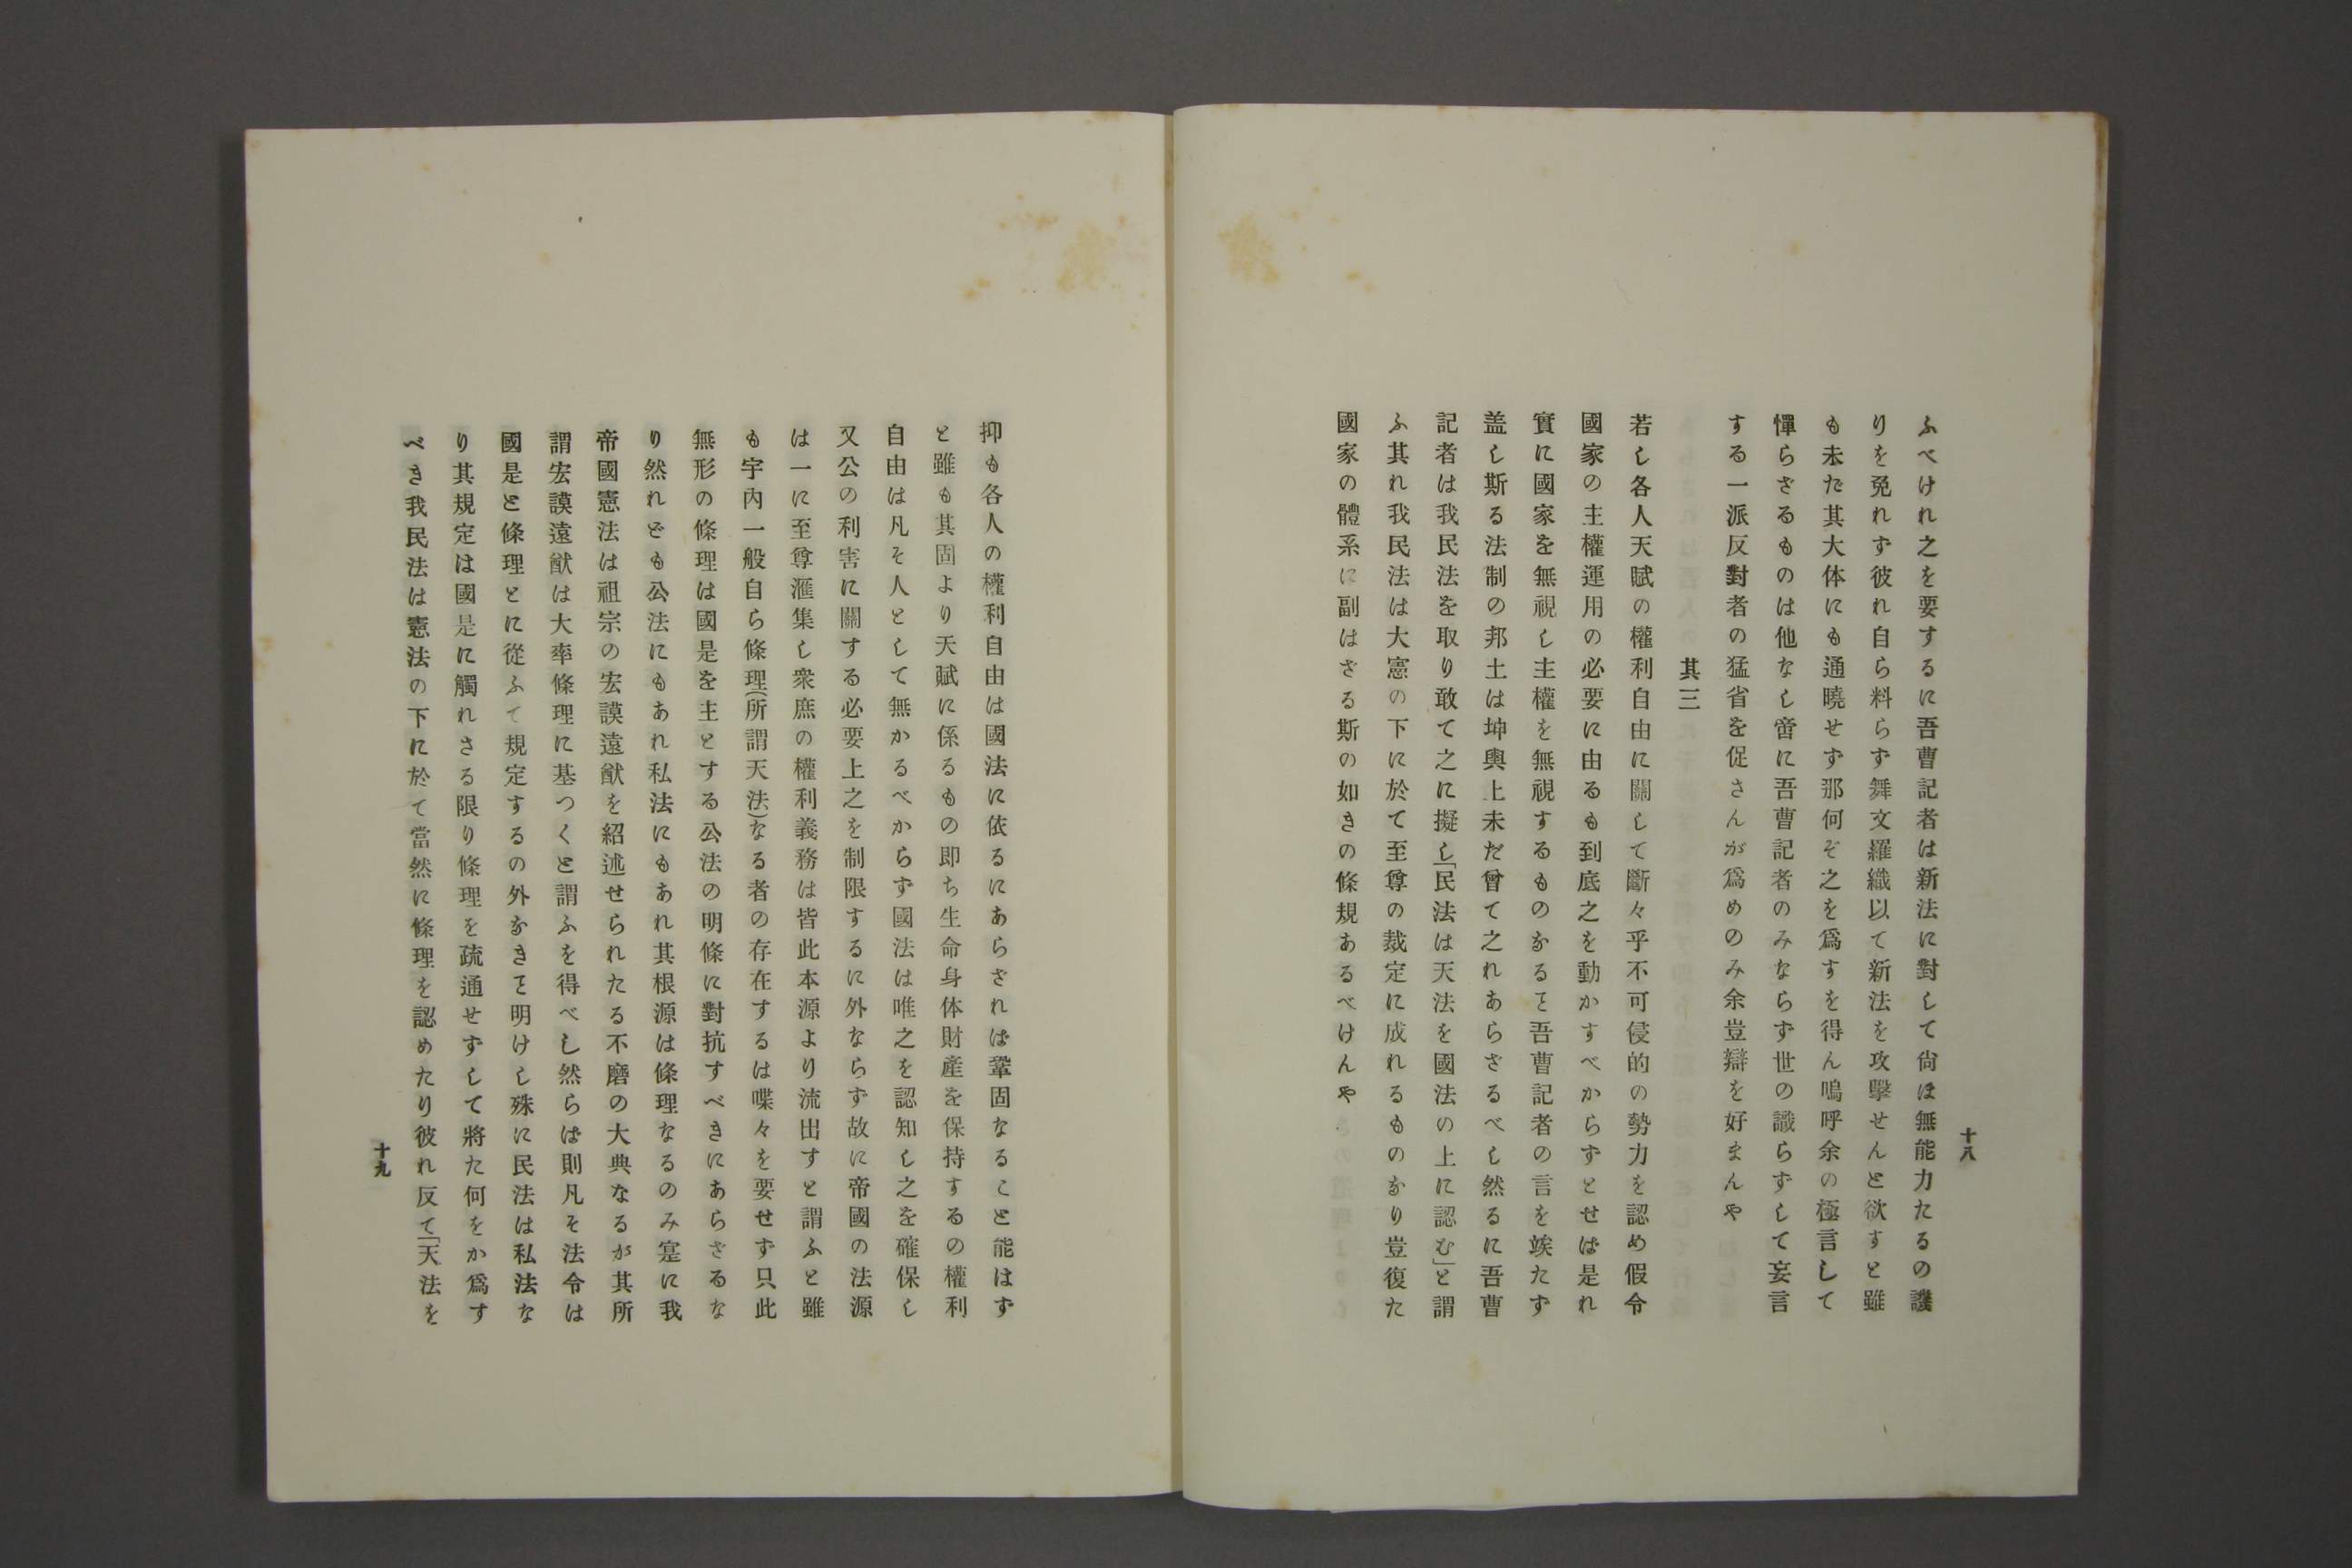 十八
ふべけれ之を要するに吾曹記者は新法に對して尙ほ無能力たるの譏
りを免れず彼れ自ら料らず舞文羅織以て新法を攻擊せんと欲すと雖
も未た其大体にも通曉せず那何ぞ之を爲すを得ん嗚呼余の極言して
憚らざるものは他なし啻に吾曹記者のみならず世の識らずして妄言
する一派反對者の猛省を促さんが爲めのみ余豈辯を好まんや
其三
若し各人天賦の權利自由に關して斷々乎不可侵的の勢力を認め假令
國家の主權運用の必要に由るも到底之を動かすべからずとせば是れ
實に國家を無視し主權を無視するものなると吾曹記者の言を竢たず
盖し斯る法制の邦土は坤輿上未だ曾て之れあらざるべし然るに吾曹
記者は我民法を取り敢て之に擬し「民法は天法を國法の上に認む」と謂
ふ其れ我民法は大憲の下に於て至尊の裁定に成れるものなり豈復た
國家の體系に副はざる斯の如きの條規あるべけんや
抑も各人の權利自由は國法に依るにあらされば鞏固なること能はず
と雖も其固より天賦に係るもの即ち生命身体財產を保持するの權利
自由は凡そ人として無かるべからず國法は唯之を認知し之を確保し
又公の利害に關する必要上之を制限するに外ならず故に帝國の法源
は一に至尊滙集し衆庶の權利義務は皆此本源より流出すと謂ふと雖
も宇內一般自ら條理(所謂天法)なる者の存在するは喋々を要せず只此
無形の條理は國是を主とする公法の明條に對抗すべきにあらざるな
り然れども公法にもあれ私法にもあれ其根源は條理なるのみ寔に我
帝國憲法は祖宗の宏謨遠猷を紹述せられたる不磨の大典なるが其所
謂宏謨遠猷は大率條理に基つくと謂ふを得べし然らば則凡そ法令は
國是と條理とに從ふて規定するの外なきと明けし殊に民法は私法な
り其規定は國是に觸れさる限り條理を疏通せずして將た何をか爲す
べき我民法は憲法の下に於て當然に條理を認めたり彼れ反て「天法を
十九